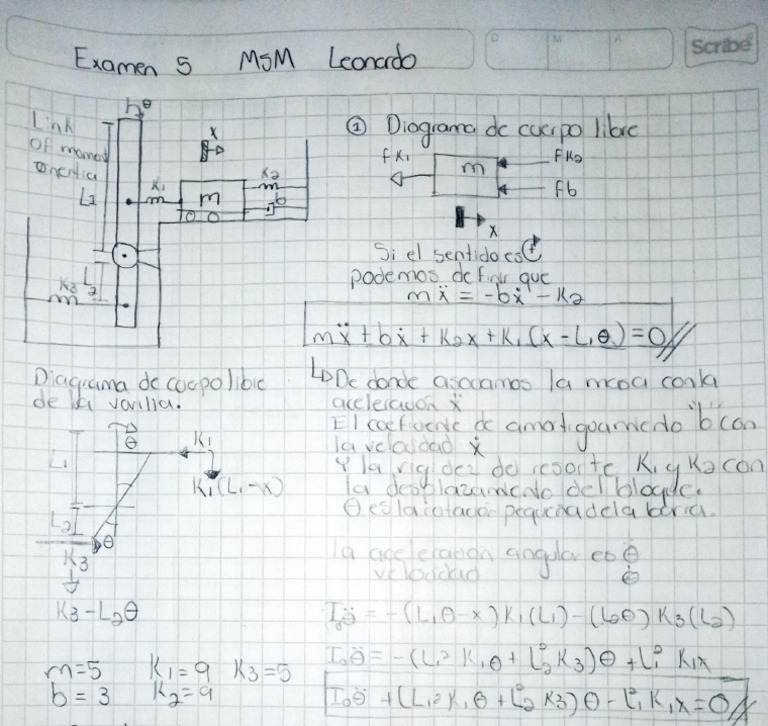 Scribe
D M A
Examen 5 MSM Leonardo
Link
Of moment
L1
θ
x
K1
m
K2
b
K3
L2
① Diagrama de cuerpo libre
fK1
m
fK2
fb
x
Si el sentido es +
podemos definir que
mẍ = -bẋ - K2
mẍ + bẋ + K2x + K1(x - L1θ) = 0//
↳ De donde asociamos la masa con la
aceleración ẍ
El coeficiente de amortiguamiento "b" con
la velocidad ẋ
Y la rigidez de resorte K1 y K2 con
la desplazamiento del bloque.
θ es la rotación pequeña de la barra.
la aceleración angular es θ̈
velocidad θ̇
Diagrama de cuerpo libre
de la varilla.
θ
L1
K1
K1(L1-x)
L2
θ
K3
K3-L2θ
I0θ̈ = -(L1θ-x)K1(L1)-(L2θ)K3(L2)
I0θ̈ = -(L1²K1θ + L2²K3)θ + L1²K1x
I0θ̈ + (L1²K1θ + L2²K3)θ - L1²K1x = 0//
m=5 K1=9 K3=5
b=3 K2=9